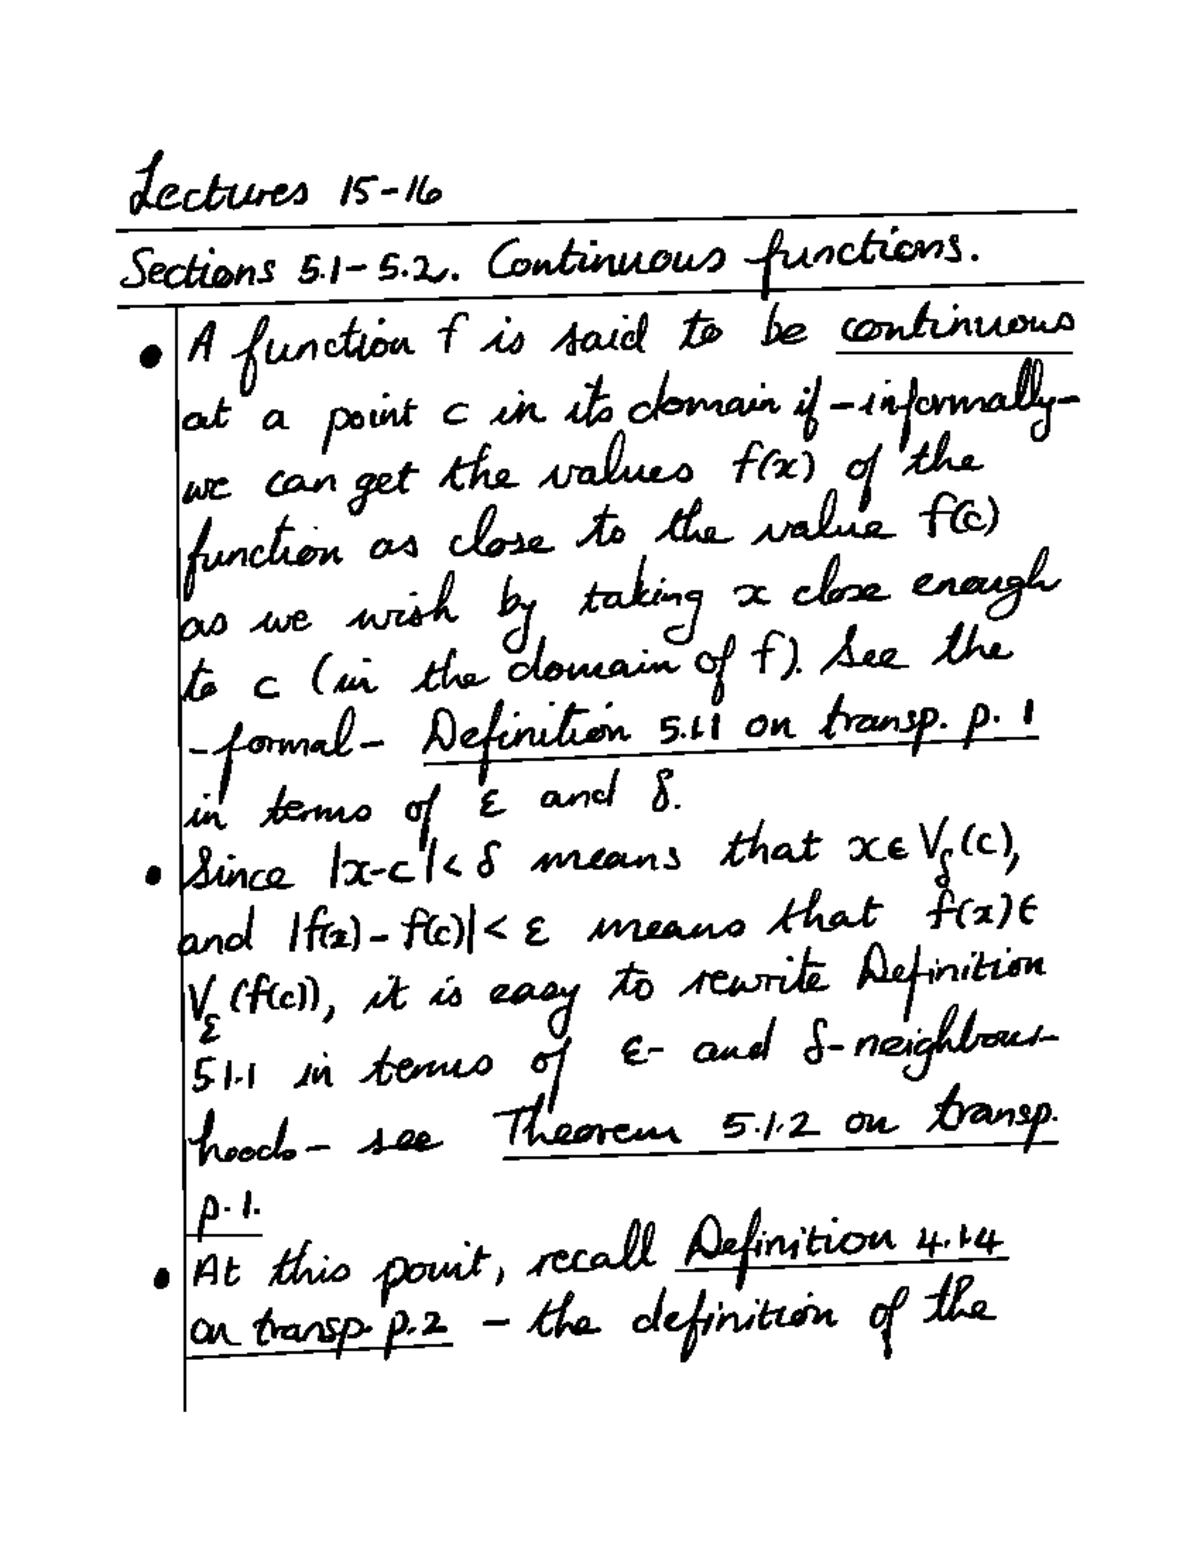 Lectures 15-16
Sections 5.1-5.2. Continuous functions.
• A function f is said to be continuous
at a point c in its domain if -informally-
we can get the values f(x) of the
function as close to the value f(c)
as we wish by taking x close enough
to c (in the domain of f). See the
-formal- Definition 5.1.1 on transp. p. 1
in terms of ε and δ.
• Since |x-c|< δ means that x∈ V_δ(c),
and |f(x)-f(c)|< ε means that f(x)∈
V_ε(f(c)), it is easy to rewrite Definition
5.1.1 in terms of ε- and δ-neighbour-
hoods- see Theorem 5.1.2 on transp.
p.1.
• At this point, recall Definition 4.1.4
on transp. p.2 - the definition of the